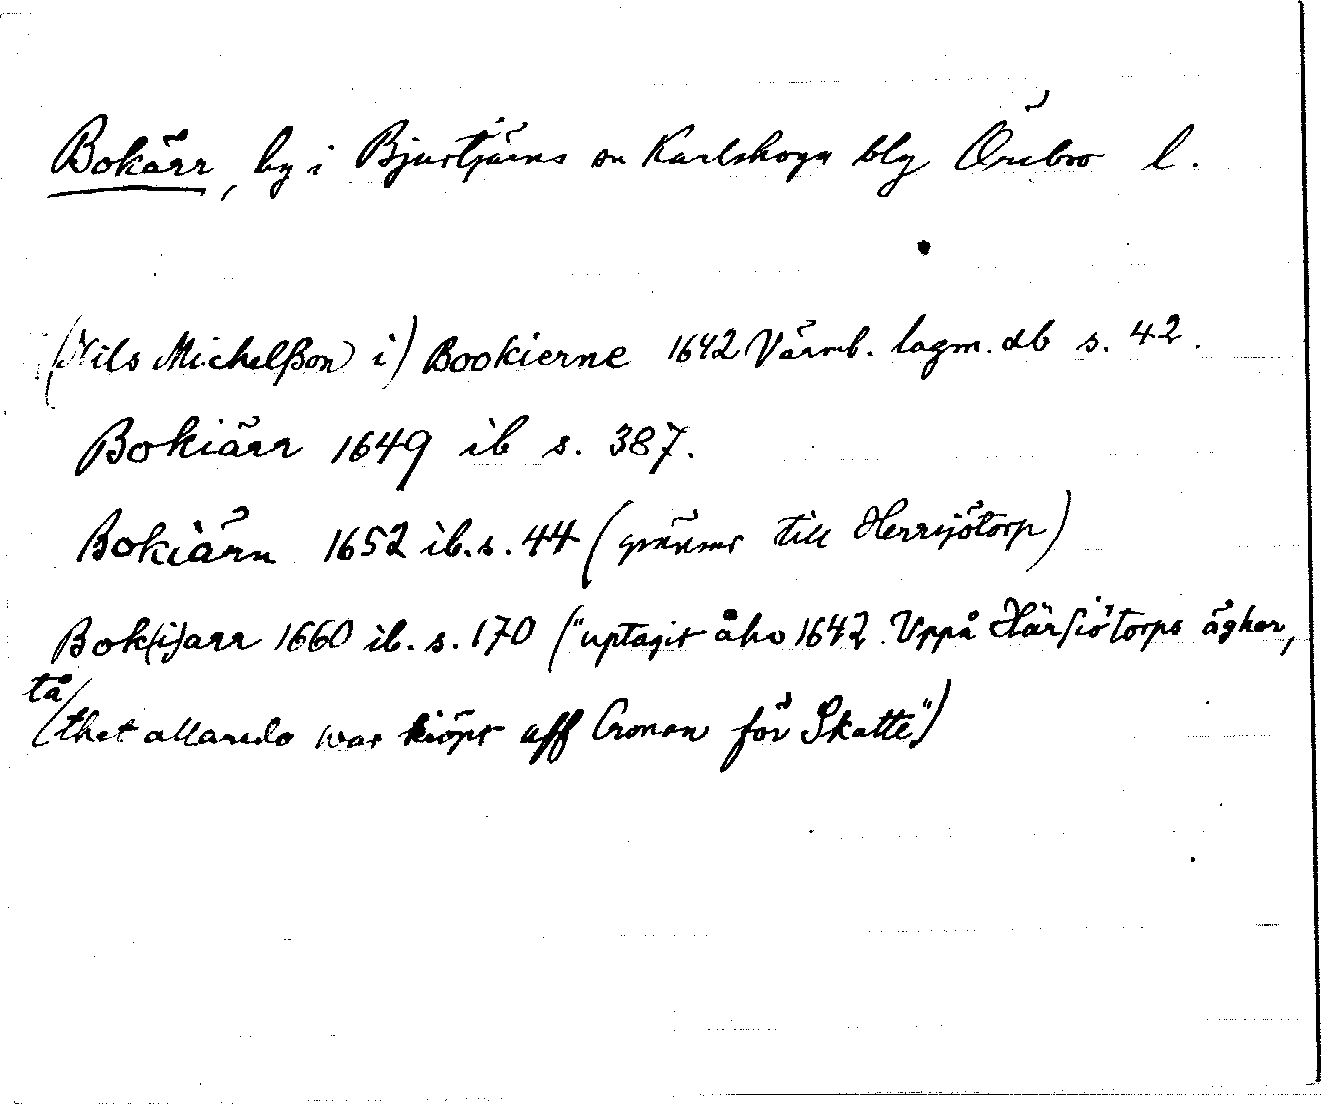 Bokärr, by i Bjurtjärns sn Karlskoga blg Örebro l.
(Nils Michelßon i) Bookierne 1642 Värml. lagm. db s. 42.
Bokiärr 1649 ib s. 387.
Bokiärn 1652 ib. s. 44 (gränsar till Herrsjötorp)
Bok(i)arr 1660 ib. s. 170 ("uptagit åhr 1642 Uppå Härsiötorps ägher,
tå
thet allaredo war kiöpt aff Cronan för Skatte")